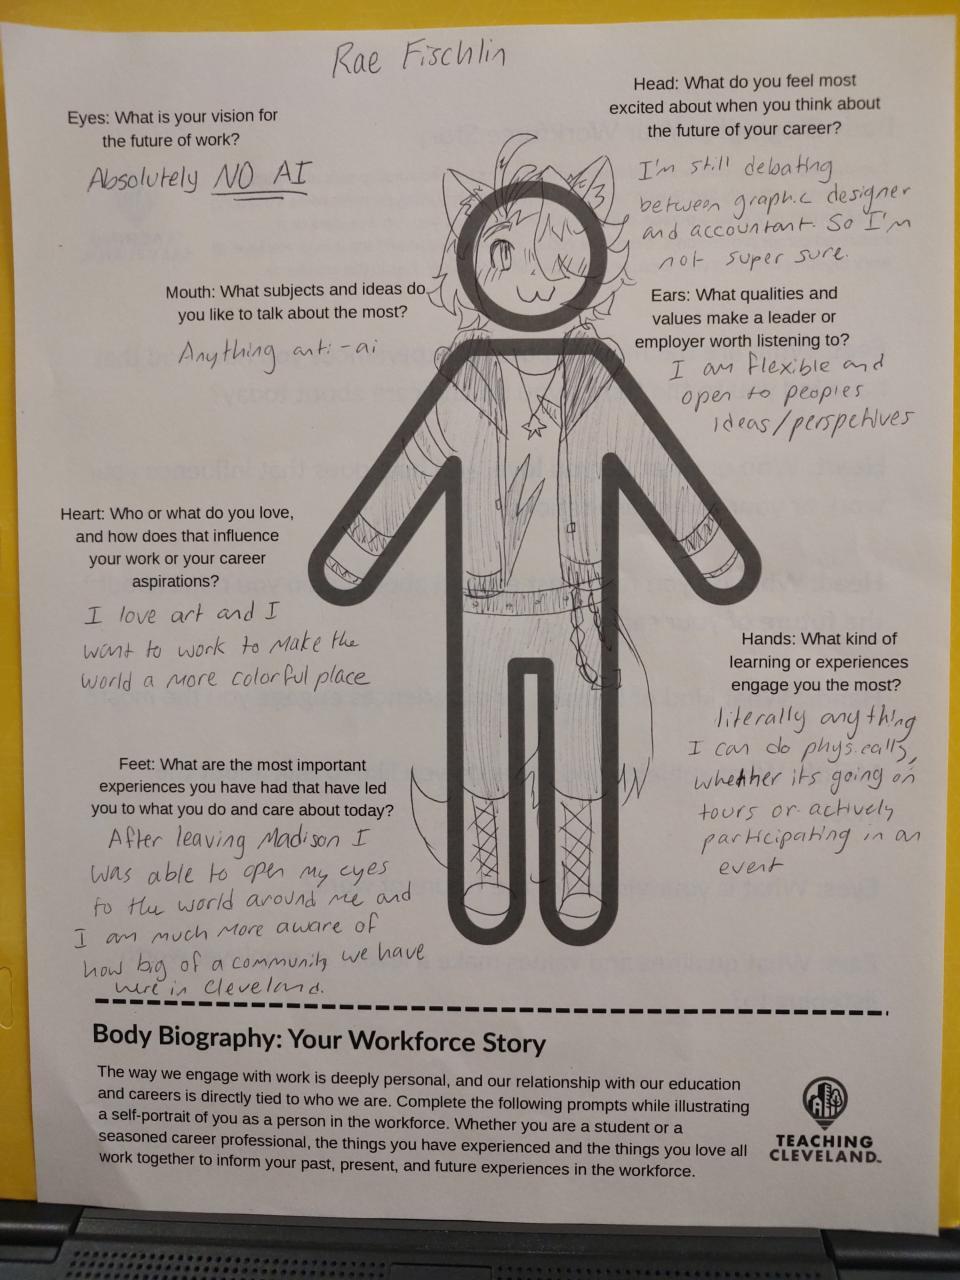 Rae Fischlin
Eyes: What is your vision for
the future of work?
Absolutely NO AI
Head: What do you feel most
excited about when you think about
the future of your career?
I'm still debating
between graphic designer
and accountant. So I'm
not super sure.
Mouth: What subjects and ideas do
you like to talk about the most?
Anything anti-ai
Ears: What qualities and
values make a leader or
employer worth listening to?
I am flexible and
open to peoples
ideas/perspectives
Heart: Who or what do you love,
and how does that influence
your work or your career
aspirations?
I love art and I
want to work to make the
world a more colorful place
Hands: What kind of
learning or experiences
engage you the most?
literally anything
I can do physically,
whether its going on
tours or actively
participating in an
event
Feet: What are the most important
experiences you have had that have led
you to what you do and care about today?
After leaving Madison I
was able to open my eyes
to the world around me and
I am much more aware of
how big of a community we have
here in Cleveland.
Body Biography: Your Workforce Story
The way we engage with work is deeply personal, and our relationship with our education
and careers is directly tied to who we are. Complete the following prompts while illustrating
a self-portrait of you as a person in the workforce. Whether you are a student or a
seasoned career professional, the things you have experienced and the things you love all
work together to inform your past, present, and future experiences in the workforce.
TEACHING
CLEVELAND™